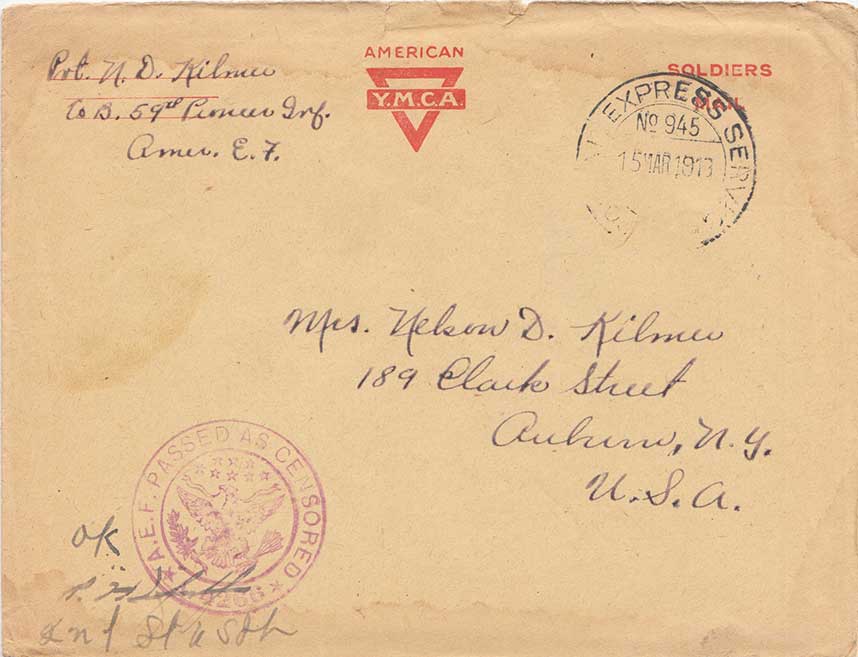 Pvt. N. D. Kilmer
Co B. 59th Pioneer Inf.
Amer. E. F.
AMERICAN
Y.M.C.A.
SOLDIERS
MAIL
EXPRESS SERV
No 945
15 MAR 191
Mrs. Nelson D. Kilmer
189 Clark Street
Auburn, N.Y.
U.S.A.
A.E.F. PASSED AS CENSORED
OK